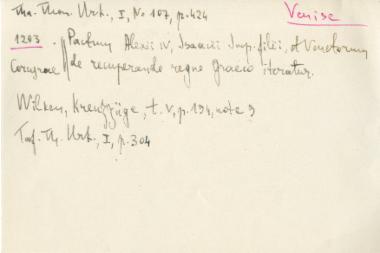 Tha. Thom. Urk., I, No 107, p. 424
Venise
1203. Pactum Alexii IV, Isaacii Imp. filii, et Venetorum
Corcyrae de recuperando regno Graeco iteratur.
Wilken, Kreuzzüge, t. V, p. 194, note 9
Taf. Th. Urk., I, p. 304